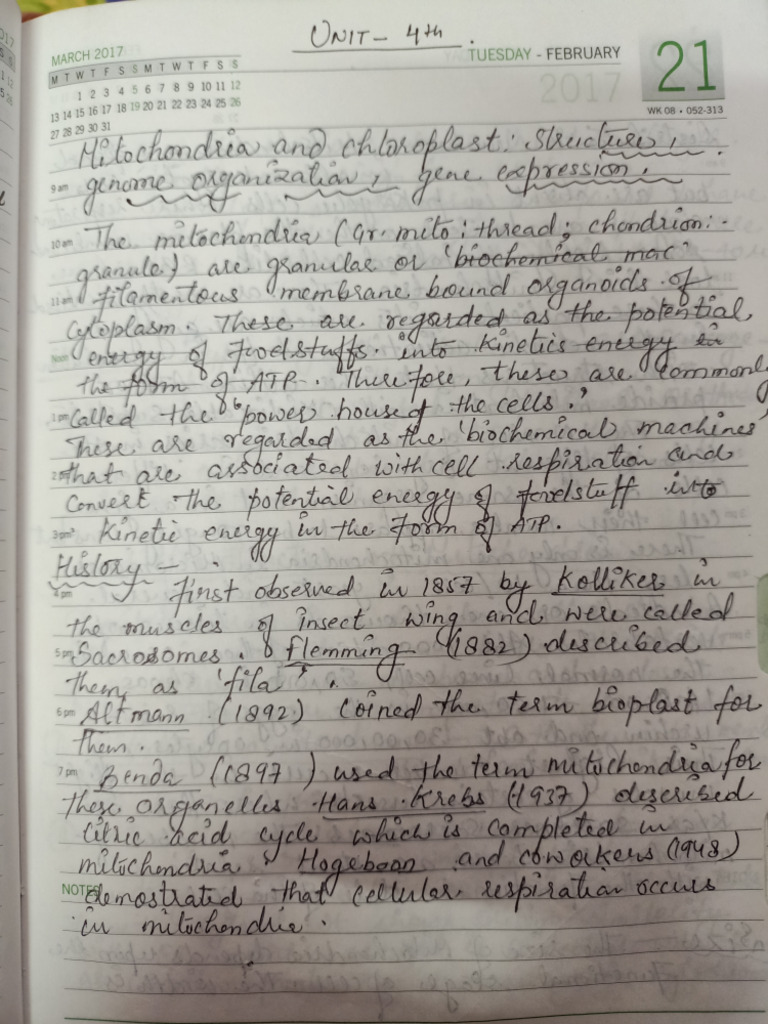 UNIT - 4th.
MARCH 2017
TUESDAY - FEBRUARY
21
2017
M T W T F S S M T W T F S S
1 2 3 4 5 6 7 8 9 10 11 12
13 14 15 16 17 18 19 20 21 22 23 24 25 26
27 28 29 30 31
WK 08 • 052-313
Mitochondria and chloroplast: structure,
9 am genome organization, gene expression.
10 am The mitochondria (Gr. mito: thread; chondrion:-
granule) are granular or 'biochemical mac
11 am filamentous membrane bound organoids of
cytoplasm. These are regarded as the potential
Noon energy of foodstuffs. into kinetics energy in
the form of ATP. Therefore, these are commonly
1 pm Called the "power house of the cells.'
These are regarded as the 'biochemical machines'
2 pm that are associated with cell respiration and
Convert the potential energy of foodstuff into
3 pm Kinetic energy in the form of ATP.
History -
4 pm first observed in 1857 by Kolliker in
the muscles of insect wing and were called
5 pm Sacrosomes. flemming (1882) described
them as 'fila'.
6 pm Altmann (1892) coined the term bioplast for
them.
7 pm Benda (1897) used the term mitochondria for
these organelles. Hans Krebs (1937) described
citric acid cycle which is completed in
mitochondria. Hogeboon and coworkers (1948)
NOTES demostrated that cellular respiration occurs
in mitochondria.